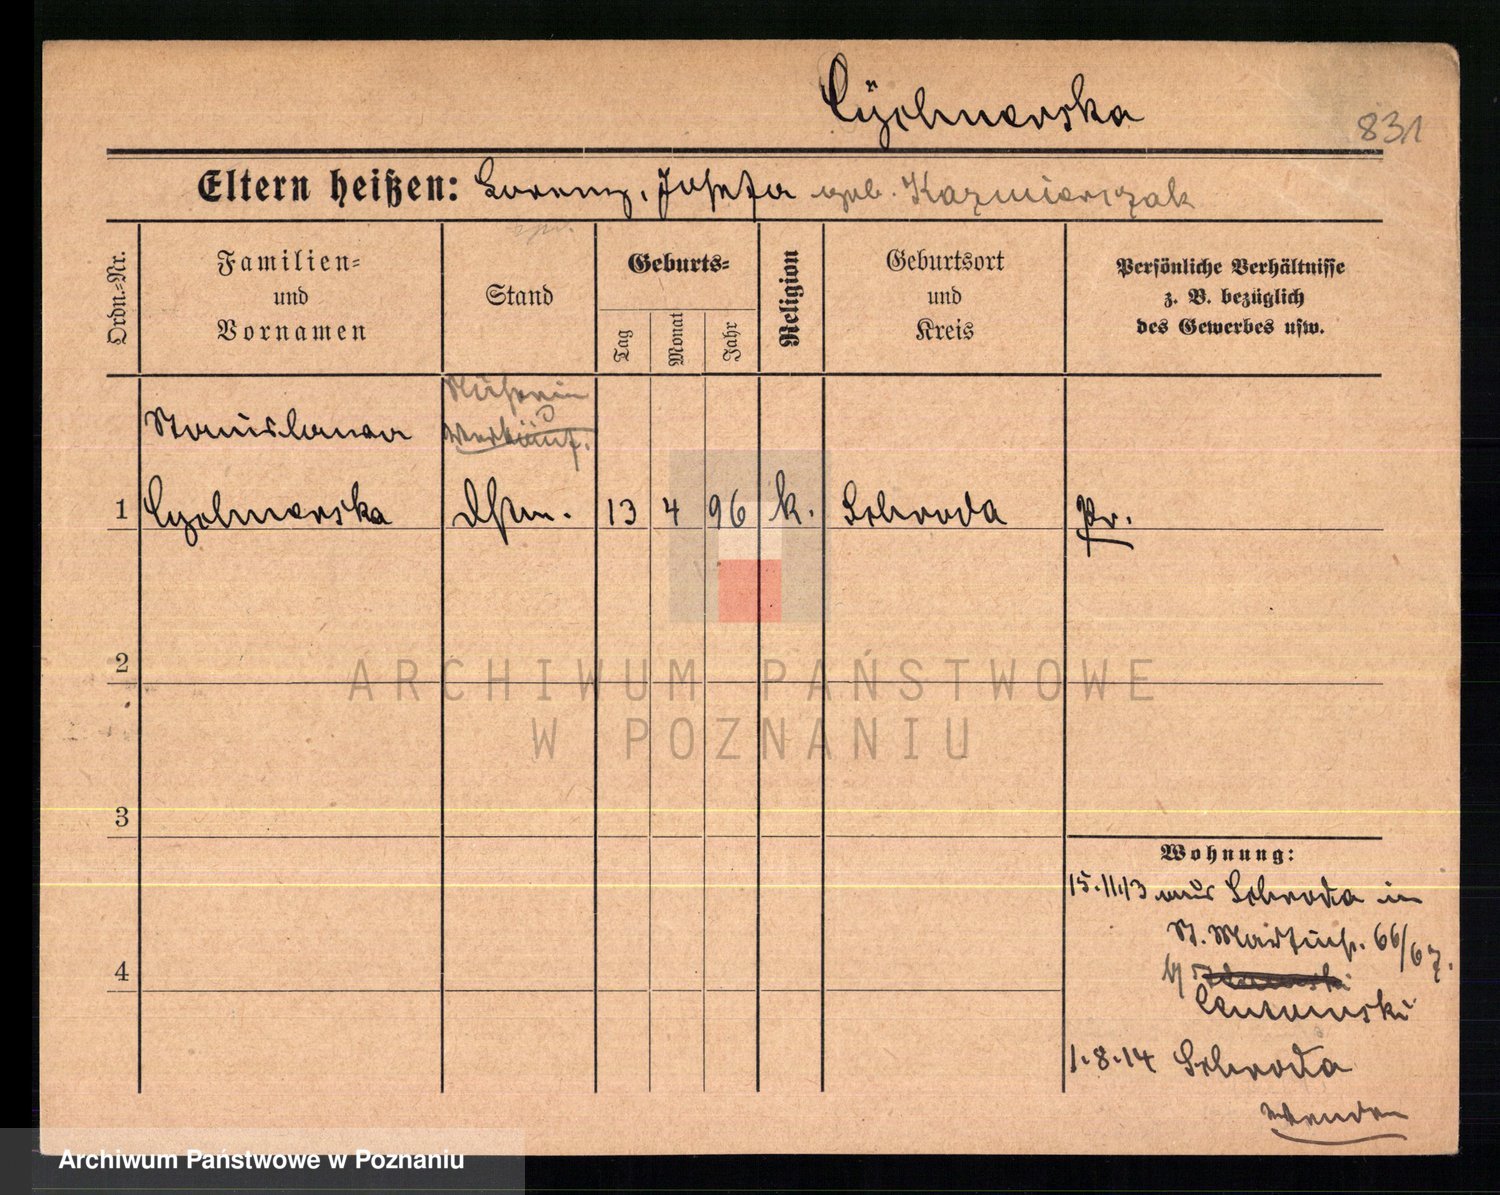 Cycholmerska
831
Eltern heißen: Lorenz, Josefa geb. Kazmierczak
Ordn.-Nr.
Familien-
und
Vornamen
Stand
Geburts-
Tag
Monat
Jahr
Religion
Geburtsort
und
Kreis
Persönliche Verhältnisse
z. B. bezüglich
des Gewerbes usw.
Näherin
Stanislawa
Verkäuf.
1
Dstm.
13
4
96
k.
Schroda
Pr.
2
ARCHIWUM PAŃSTWOWE
W POZNANIU
3
Wohnung:
15.11.13 aus Schroda in
St. Martinstr. 66/67.
4
b/
Centowski
1.8.14 Schroda
wenden
Archiwum Państwowe w Poznaniu